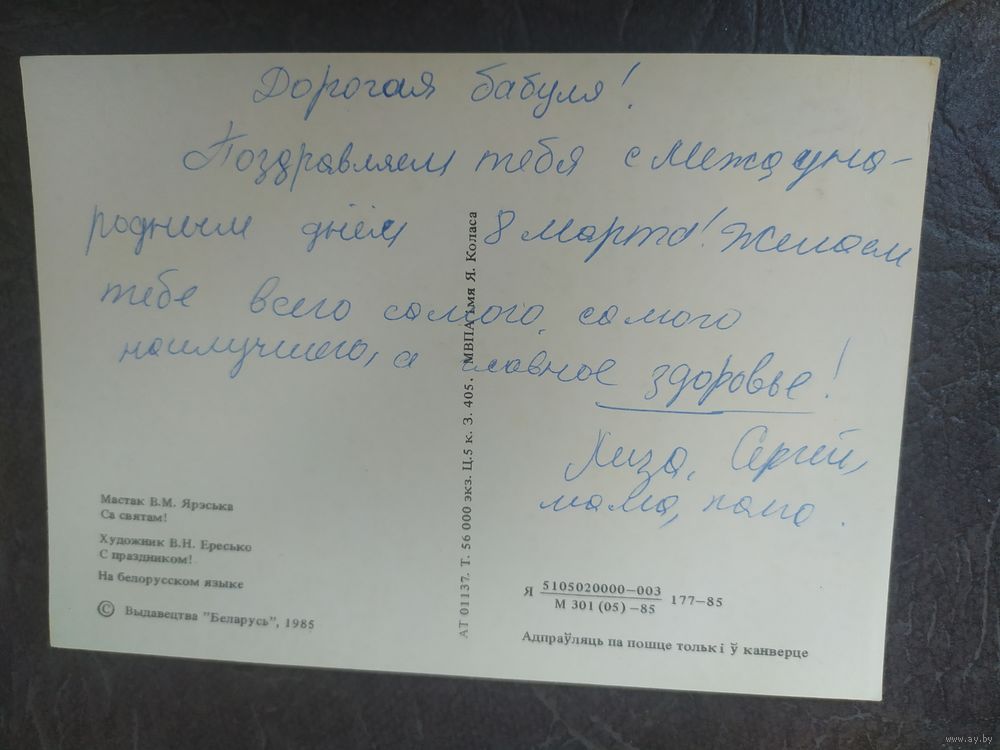 Дорогая бабуля!
Поздравляем тебя с Междуна-
родным днём 8 марта! Желаем
тебе всего самого, самого
наилучшего, а главное здоровье!
Лиза, Сергей,
мама, папа.
Мастак В.М. Ярэська
Са святам!
Художник В.Н. Ересько
С праздником!
На белорусском языке
© Выдавецтва "Беларусь", 1985
АТ 01137. Т. 56 000 экз. Ц.5 к. З. 405. МВПА імя Я. Коласа
Я 5105020000—003 177—85
М 301 (05) —85
Адпраўляць па пошце толькі ў канверце
www.ay.by